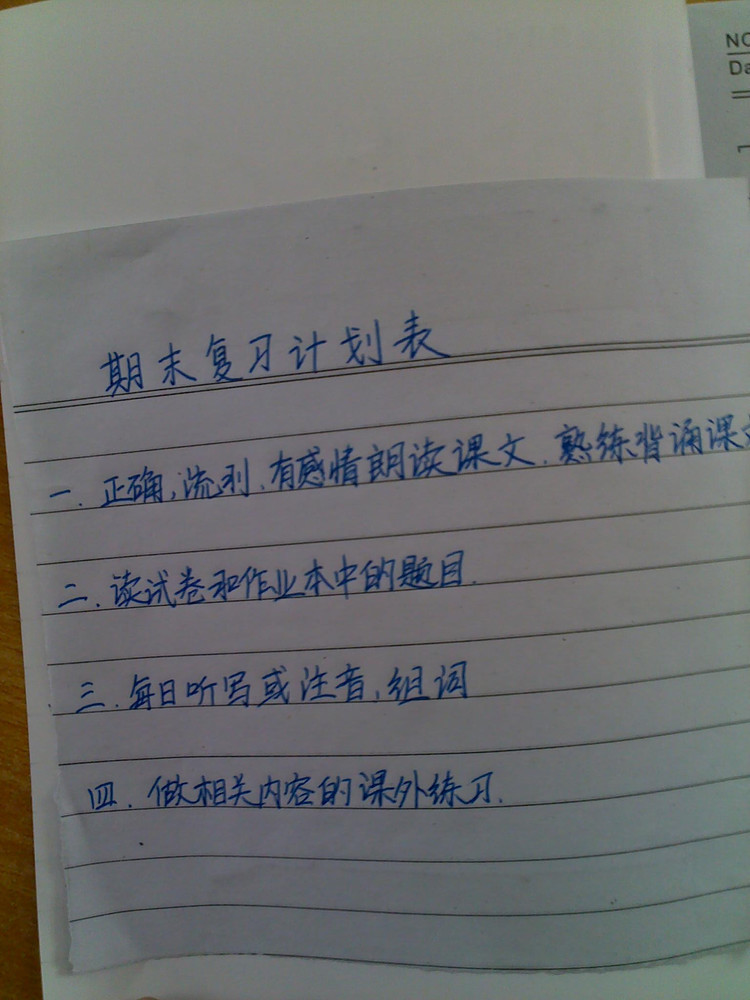 NO
Da
期末复习计划表
一、正确,流利、有感情朗读课文、熟练背诵课
二、读试卷和作业本中的题目.
三、每日听写或注音,组词
四、做相关内容的课外练习.